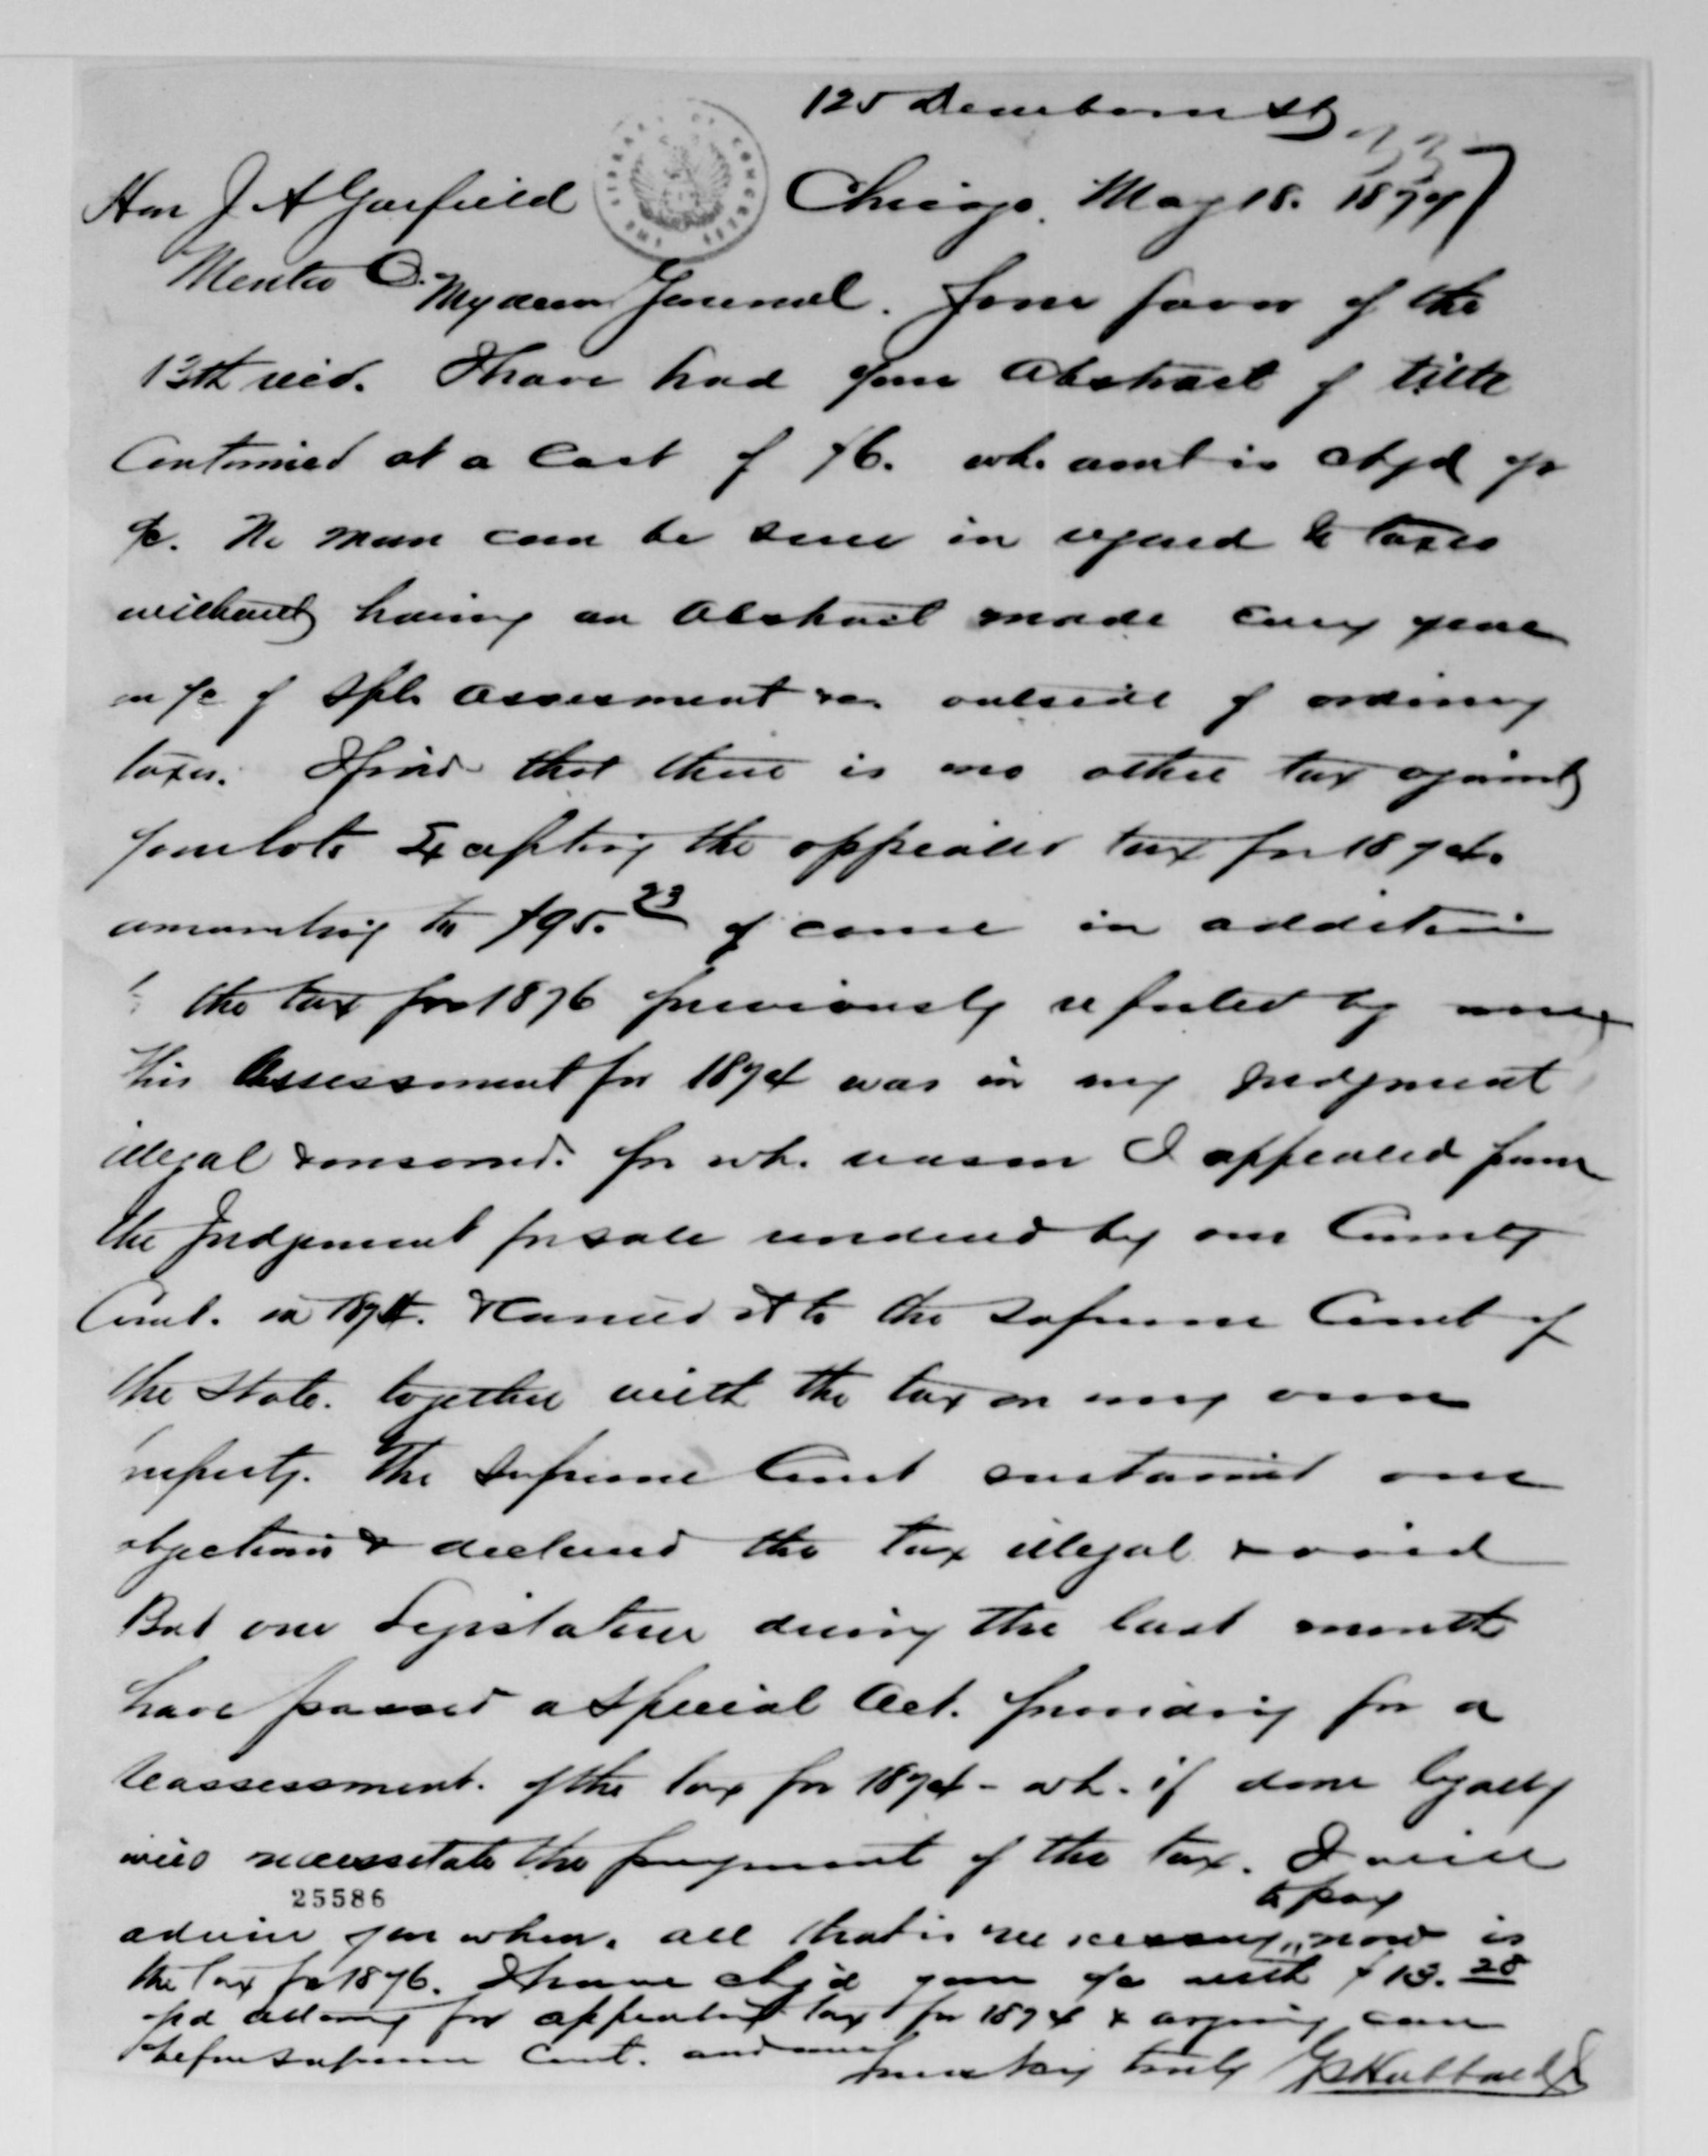 125 Dearborn St
Hon J A Garfield Chicago. May 18. 1877
Mentor O. My dear General. Your favor of the
13th recd. I have had your Abstract of title
Continued at a cost of $6. wh. amt is chgd yr
a/c. No man can be sure in regard to taxes
without having an Abstract made every year
on a/c of Spl. assessment &c. outside of ordinary
taxes. I find that there is no other tax against
your lots Excepting the appealed tax for 1874.
amounting to $95.23 of course in addition
the tax for 1876 previously reported by me
This Assessment for 1874 was in my judgment
illegal & unsound. for wh. reason I appealed from
the Judgement for sale rendered by our County
Court. in 1874. & carried it to the Supreme Court of
the State. together with the tax on my own
property. The Supreme Court sustained our
objections & declared the tax illegal & void
But our Legislature during the last month
have passed a Special Act. providing for a
reassessment. of the tax for 1874 - wh. if done legally
will necessitate the payment of the tax. I will
to pay
25586
advise you when. all that is necessary now is
the tax for 1876. I have chg'd your a/c with $13.28
pd attorney for appealing tax for 1874 & arguing case
before Supreme Court. and
truly G Hubbard Jr